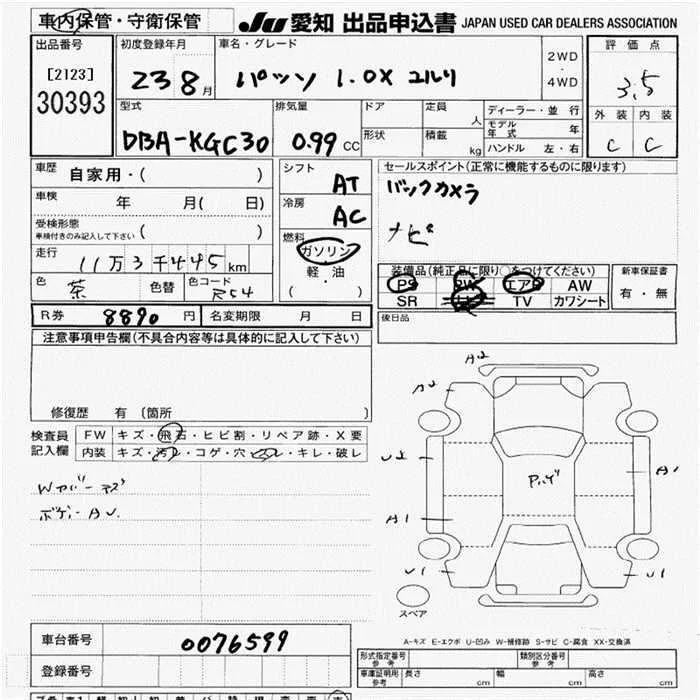 車内保管・守衛保管 JU 愛知 出品申込書 JAPAN USED CAR DEALERS ASSOCIATION
出品番号 [2123] 30393
初度登録年月 23 8月
車名・グレード パッソ 1.0X
2WD・4WD
評価点 3.5
外装 内装
C C
型式 DBA-KGC30
排気量 0.99 CC
ドア 形状
定員 人
積載 kg
ディーラー・並行
モデル年式 年
ハンドル 左・右
車歴 自家用・( )
車検 年 月( 日)
受検形態 車検付きのみ記入して下さい ( )
走行 11万3千445km
色 茶 色替 色コード R54
シフト AT
冷房 AC
燃料 ガソリン・軽油 ( )
セールスポイント(正常に機能するものに限ります)
バックカメラ
ナビ
装備品(純正品に限り○をつけてください)
PS PW エアB AW
SR TV カワシート
新車保証書 有・無
R券 8890円 名変期限 月 日
後日品
注意事項申告欄(不具合内容等は具体的に記入して下さい)
修復歴 有 (箇所 )
検査員記入欄
FW キズ・飛石・ヒビ割・リペア跡・X要
内装 キズ・汚レ・コゲ・穴・スレ・キレ・破レ
ボデーAU.
A2
A2
A1
A1
U1
U1
スペア
A-キズ E-エクボ U-凹み W-補修跡 S-サビ C-腐食 XX-交換済
車台番号 0076599
登録番号
形式指定番号 参考 類別区分番号 参考
車庫証明用 参考 長さ cm 幅 cm 高さ cm